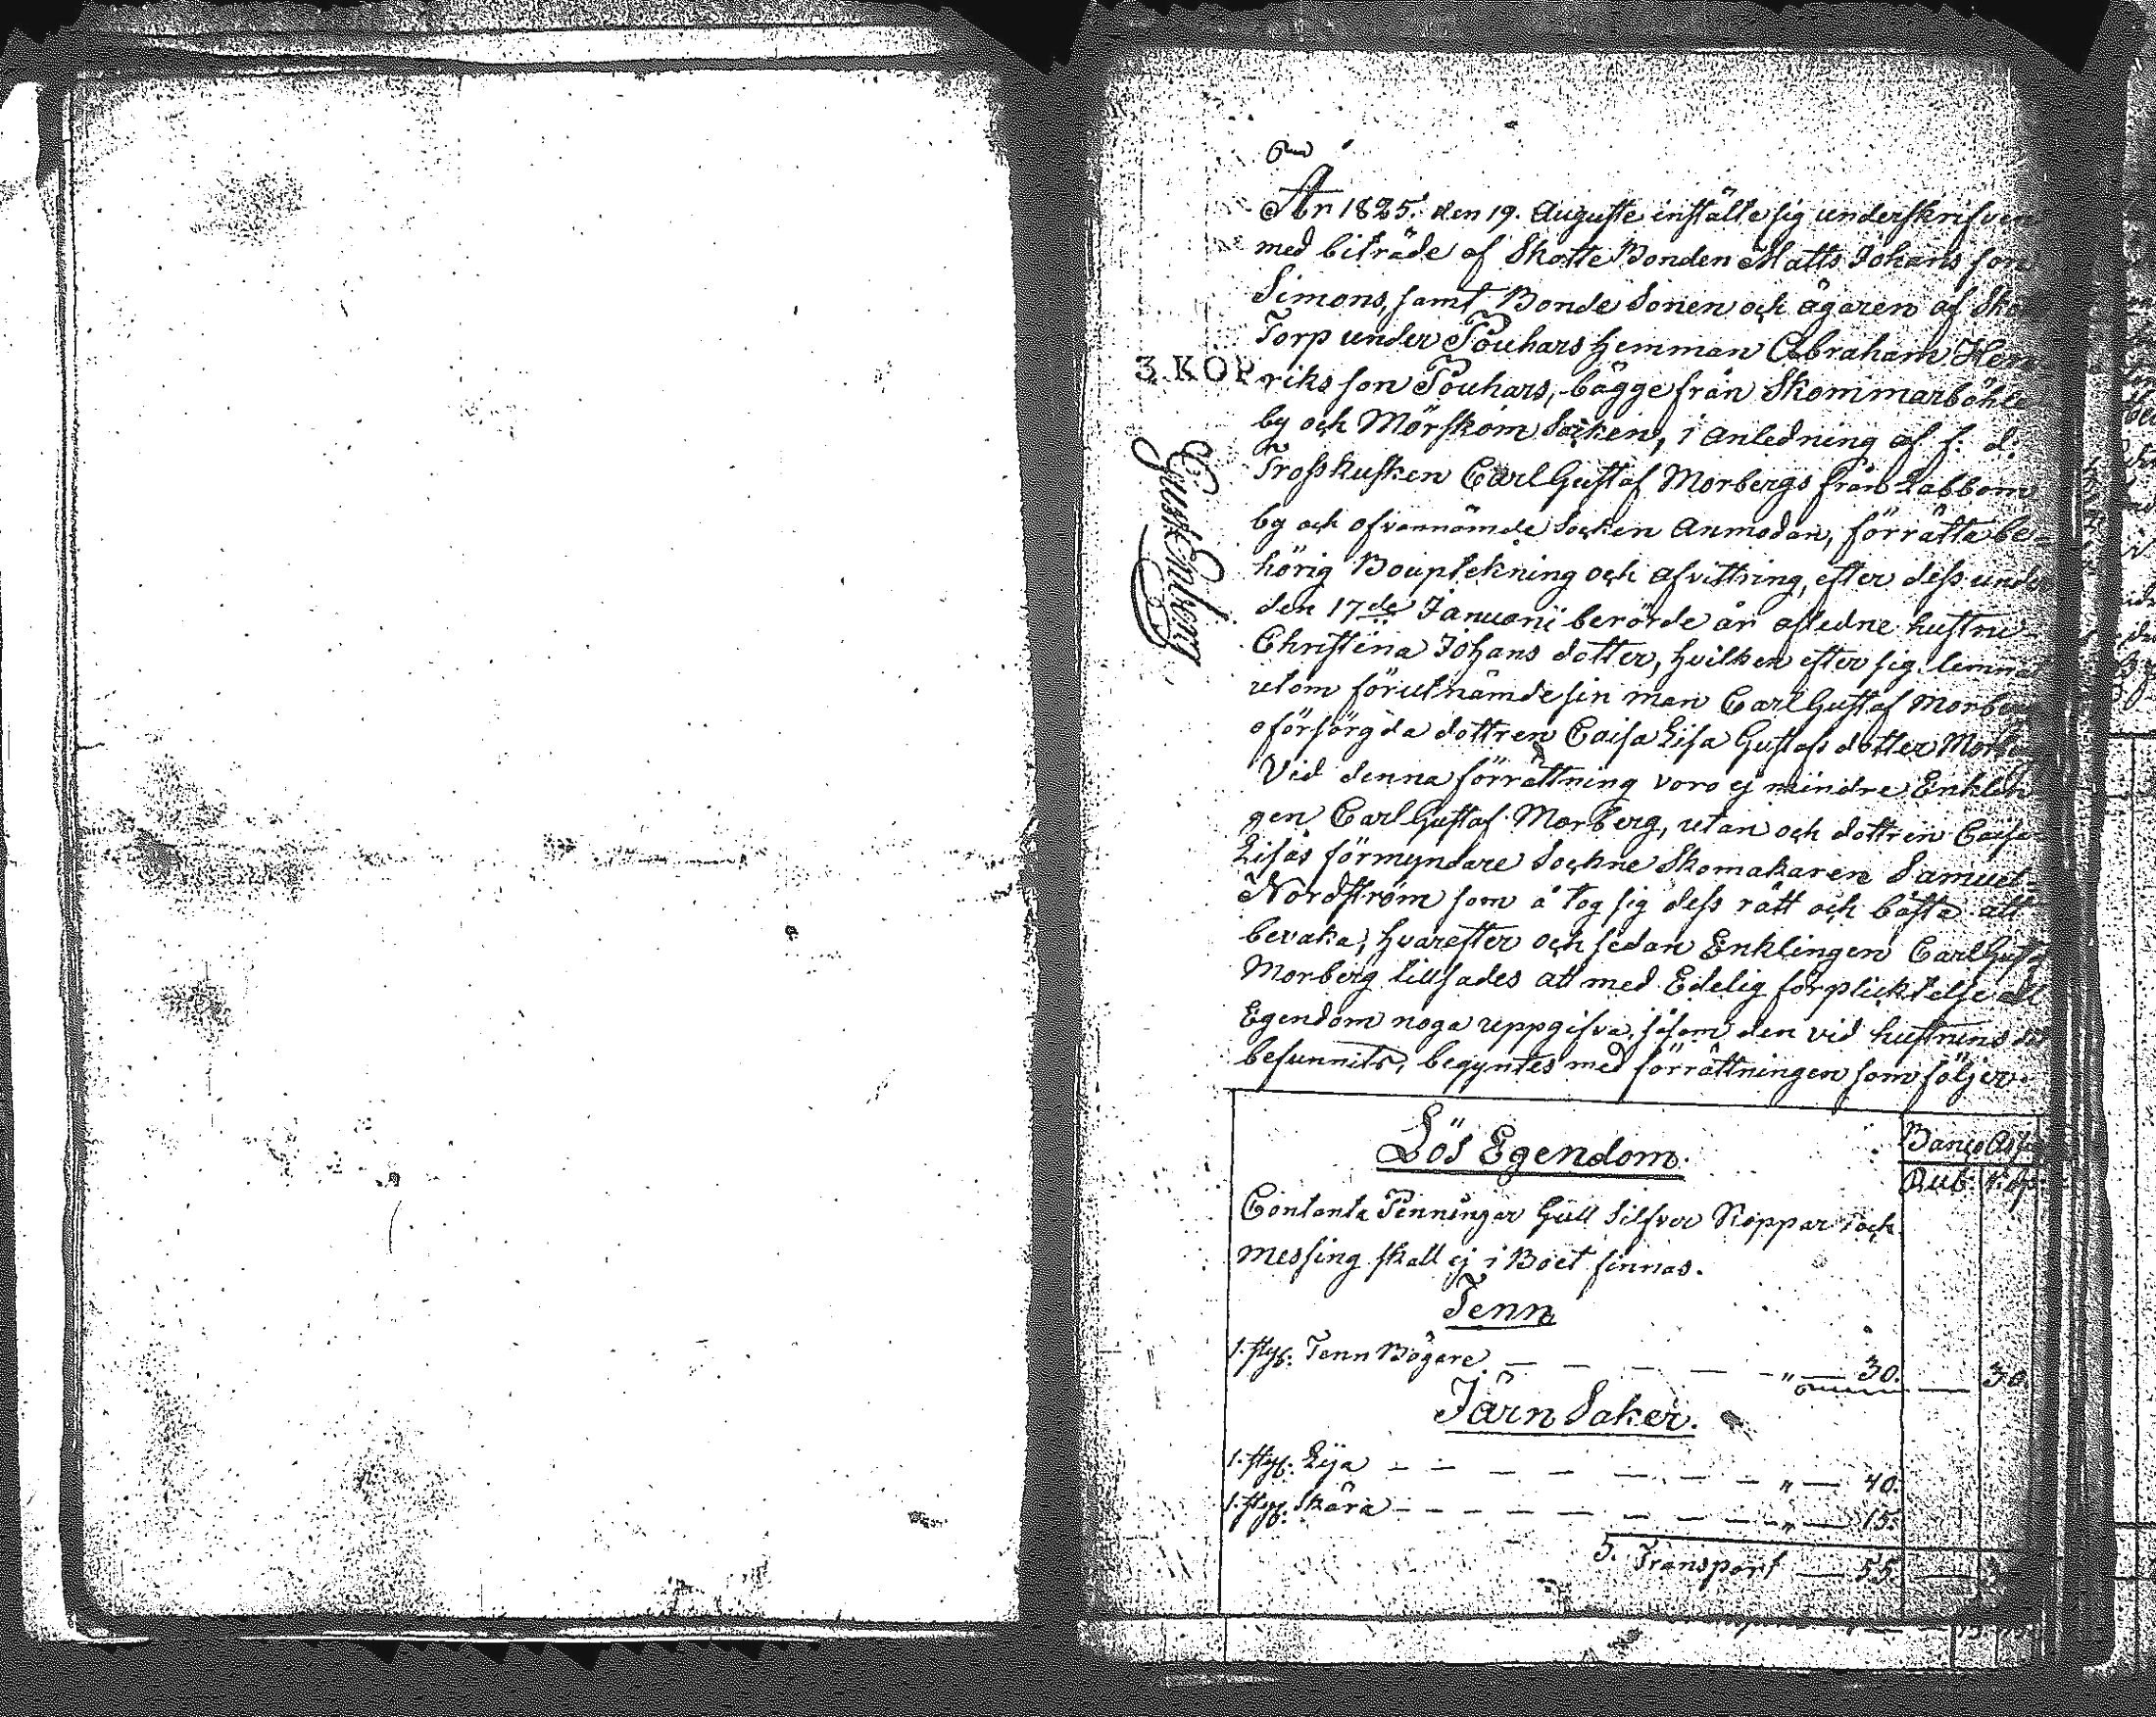 År 1825. den 19. Auguste instälte sig underskrifven
med biträde af Skatte Bonden Matts Johans son
Simons, samt Bonde Sonen och ägaren af
Torp under Pouhars Hemman Abraham Hen
3. KOP.
riks son Pouhars, bägge från Skommarböhle
by och Mörskom Socken, i anledning af f: d:
Trosskusken Carl Gustaf Morbergs från Labbom
by och ofvannämde Socken Anmodan, förrätta be-
hörig Bouptekning och afvittring, efter dess under
den 17de Januarii berörde år aflidne hustru
Christina Johans dotter, hvilken efter sig lemnat
utom förutnämde sin man Carl Gustaf Morberg
oförsörgda dottren Caisa Lisa Gustafs dotter Morberg
Vid denna förrättning voro ej mindre Enklin
gen Carl Gustaf Morberg, utan och dottren Caisa
Lisas förmyndare Sockne Skomakaren Samuel
Nordström som å tog sig dess rätt och bästa att
bevaka, hvarefter och sedan Enklingen Carl Gustaf
Morberg tillsades att med Edelig förplicktelse all
Egendom noga uppgifva, såsom den vid hustruns
befunnits, begyntes med förrättningen som följer.
Lös Egendom.
Banco
Rub. Kop.
Contanta Penningar Gull Silfver Koppar och
messing skall ej i Boet finnas.
Tenn
1. styk: Tenn Bägare — — — — — „ — 30. — 30.
Järn Saker.
1. styk: Lija — — — — — — — „ — 40.
1. styk: Skära — — — — — — — „ — 15.
S. Transport — 55. —